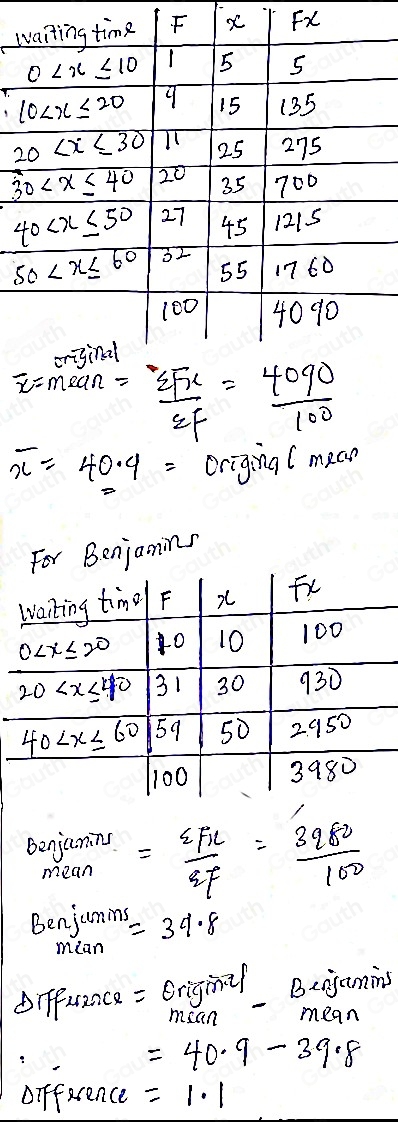 waiting time F x Fx
0 < x ≤ 10 1 5 5
10 < x ≤ 20 9 15 135
20 < x ≤ 30 11 25 275
30 < x ≤ 40 20 35 700
40 < x ≤ 50 27 45 1215
50 < x ≤ 60 32 55 1760
100 4090
original
x̄ = mean = ΣFx / ΣF = 4090 / 100
x̄ = 40.9 = Original mean
For Benjamins
Waiting time F x Fx
0 < x ≤ 20 10 10 100
20 < x ≤ 40 31 30 930
40 < x ≤ 60 59 50 2950
100 3980
Benjamins mean = ΣFx / ΣF = 3980 / 100
Benjamins mean = 39.8
Difference = Original mean - Benjamins mean
= 40.9 - 39.8
Difference = 1.1